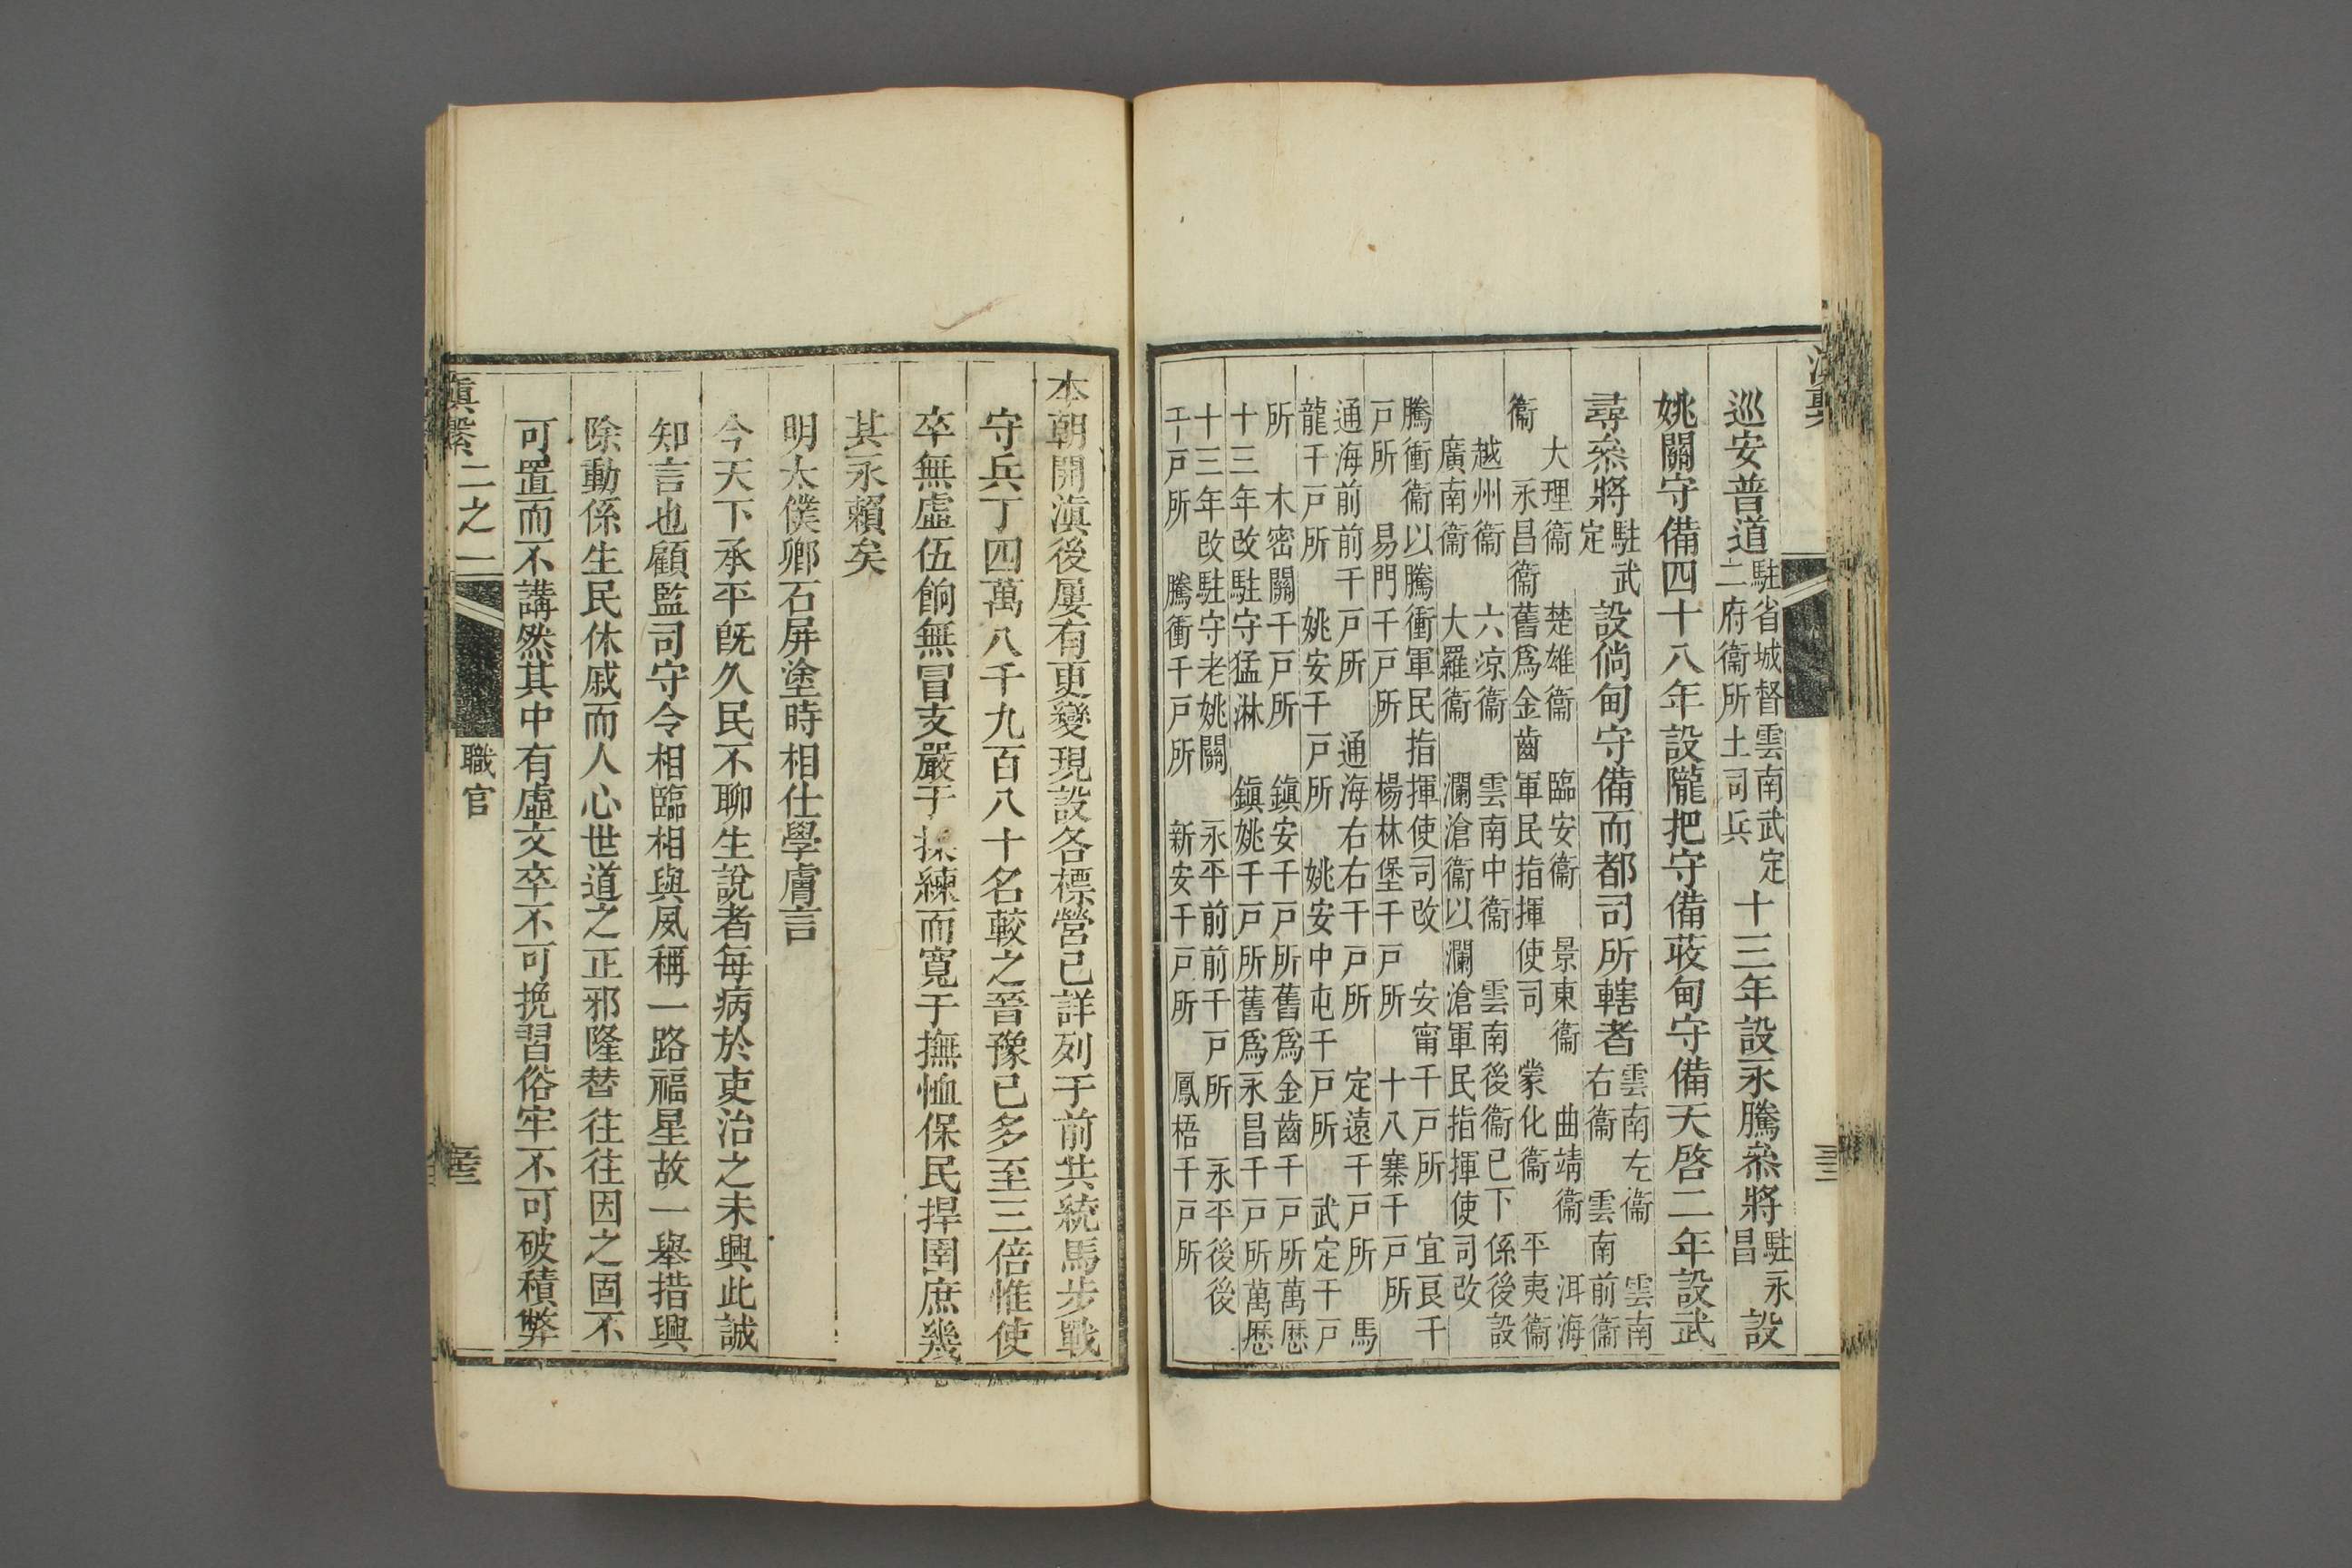 巡安普道駐省城督雲南武定二府衞所土司兵十三年設永騰叅將駐永昌設
姚關守備四十八年設隴把守備蒞甸守備天啓二年設武
尋叅將駐武定設倘甸守備而都司所轄者雲南左衞　雲南右衞　雲南前衞
大理衞　楚雄衞　臨安衞　景東衞　曲靖衞　洱海
衞　永昌衞舊爲金齒軍民指揮使司　蒙化衞　平夷衞
越州衞　六凉衞　雲南中衞　雲南後衞已下係後設
廣南衞　大羅衞　瀾滄衞以瀾滄軍民指揮使司改
騰衝衞以騰衝軍民指揮使司改　安甯千戸所　宜良千
戸所　易門千戸所　楊林堡千戸所　十八寨千戸所
通海前前千戸所　通海右右千戸所　定遠千戸所　馬
龍千戸所　姚安千戸所　姚安中屯千戸所　武定千戸
所　木密關千戸所　鎮安千戸所舊爲金齒千戸所萬厯
十三年改駐守猛淋　鎮姚千戸所舊爲永昌千戸所萬厯
十三年改駐守老姚關　永平前前千戸所　永平後後
千戸所　騰衝千戸所　新安千戸所　鳳梧千戸所
本朝開滇後屢有更變現設各標營已詳列于前共統馬步戰
守兵丁四萬八千九百八十名較之晉豫已多至三倍惟使
卒無虛伍餉無冒支嚴于操練而寬于撫恤保民捍圉庶幾
其永賴矣
明太僕卿石屏塗時相仕學膚言
今天下承平旣久民不聊生說者每病於吏治之未興此誠
知言也顧監司守令相臨相與夙稱一路福星故一舉措興
除動係生民休戚而人心世道之正邪隆替往往因之固不
可置而不講然其中有虛文卒不可挽習俗牢不可破積弊
滇繫 二之一 職官